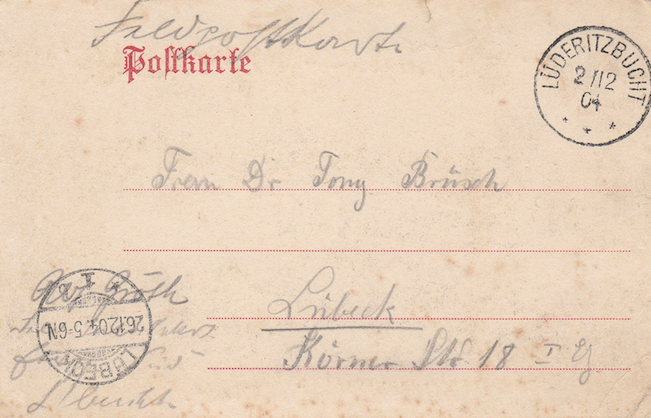 Feldpostkarte
Postkarte
LÜDERITZBUCHT
2/12
04
* * *
Frau Dr Tony Brüsch
Lübeck
Körner Str 18 I Etg
LÜBECK
26.12.04.5-6N.
* 1 *